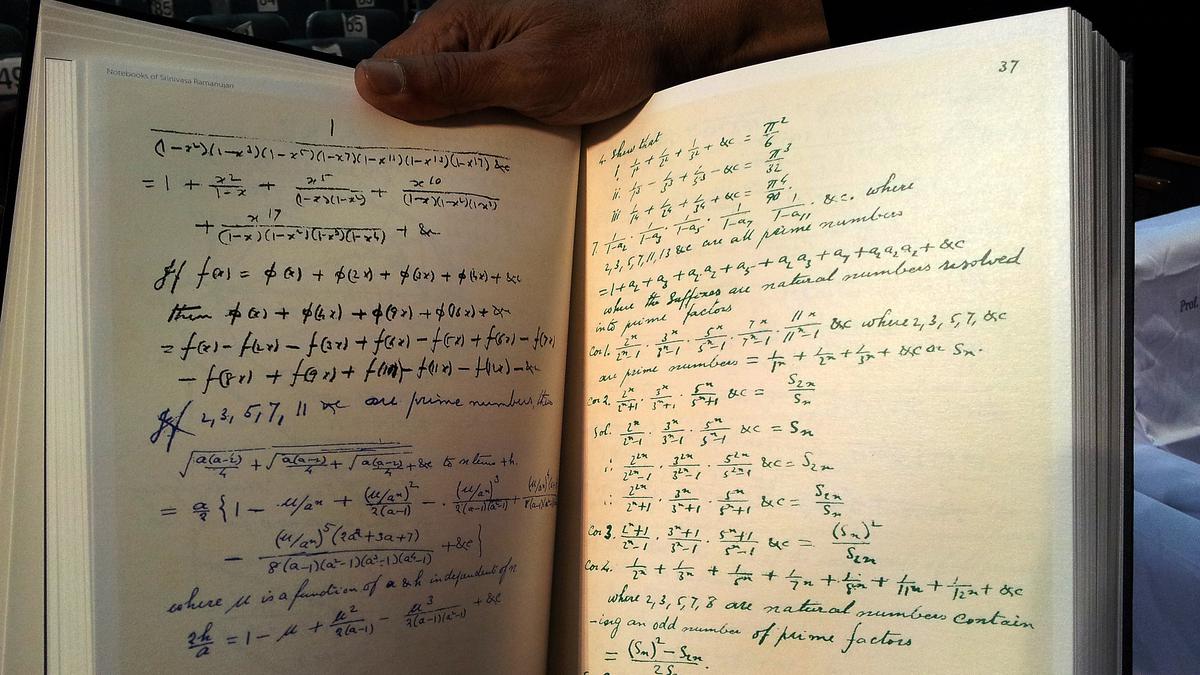 85
64
65
49
Notebooks of Srinivasa Ramanujan
1
(1-x²)(1-x³)(1-x⁵)(1-x⁷)(1-x¹¹)(1-x¹³)(1-x¹⁷) &c
= 1 + x²/(1-x) + x⁵/((1-x)(1-x²)) + x¹⁰/((1-x)(1-x²)(1-x³))
+ x¹⁷/((1-x)(1-x²)(1-x³)(1-x⁴)) + &c
If f(x) = φ(x) + φ(2x) + φ(3x) + φ(4x) + &c
then φ(x) + φ(4x) + φ(9x) + φ(16x) + &c
= f(x) - f(2x) - f(3x) + f(4x) - f(5x) + f(6x) - f(7x)
- f(8x) + f(9x) + f(10x) - f(11x) - f(12x) - &c
If 2, 3, 5, 7, 11 &c are prime numbers, then
√(a(a-2)/4 + √(a(a-2)/4 + √(a(a-2)/4 + &c to n terms + h.
= a/2 {1 - μ/aⁿ + (μ/aⁿ)²/(2(a-1)) - (μ/aⁿ)³/(2(a-1)(a²-1)) +
- (μ/aⁿ)⁵(2a²+3a+7)/(8(a-1)(a²-1)(a³-1)(a⁴-1)) + &c}
where μ is a function of a & h independent of n
2h/a = 1 - μ + μ²/(2(a-1)) - μ³/(2(a-1)(a²-1)) + &c
37
4. Show that
i. 1/1² + 1/2² + 1/3² + &c = π²/6
ii. 1/1³ - 1/3³ + 1/5³ - &c = π³/32
iii 1/1⁴ + 1/2⁴ + 1/3⁴ + &c = π⁴/90.
7. 1/(1-a₂) · 1/(1-a₃) · 1/(1-a₅) · 1/(1-a₇) · 1/(1-a₁₁) &c. where
2, 3, 5, 7, 11, 13 &c are all prime numbers
= 1 + a₂ + a₃ + a₂a₂ + a₅ + a₂a₃ + a₇ + a₂a₂a₂ + &c
where the suffixes are natural numbers resolved
into prime factors
Cor 1. 2ⁿ/(2ⁿ-1) · 3ⁿ/(3ⁿ-1) · 5ⁿ/(5ⁿ-1) · 7ⁿ/(7ⁿ-1) · 11ⁿ/(11ⁿ-1) &c where 2, 3, 5, 7, &c
are prime numbers = 1/1ⁿ + 1/2ⁿ + 1/3ⁿ + &c or Sₙ.
Cor 2. 2ⁿ/(2ⁿ+1) · 3ⁿ/(3ⁿ+1) · 5ⁿ/(5ⁿ+1) &c = S₂ₙ/Sₙ
Sol. 2ⁿ/(2ⁿ-1) · 3ⁿ/(3ⁿ-1) · 5ⁿ/(5ⁿ-1) &c = Sₙ
∴ 2²ⁿ/(2²ⁿ-1) · 3²ⁿ/(3²ⁿ-1) · 5²ⁿ/(5²ⁿ-1) &c = S₂ₙ
∴ 2ⁿ/(2ⁿ+1) · 3ⁿ/(3ⁿ+1) · 5ⁿ/(5ⁿ+1) &c = S₂ₙ/Sₙ
Cor 3. (2ⁿ+1)/(2ⁿ-1) · (3ⁿ+1)/(3ⁿ-1) · (5ⁿ+1)/(5ⁿ-1) &c = (Sₙ)²/S₂ₙ
Cor 4. 1/2ⁿ + 1/3ⁿ + 1/5ⁿ + 1/7ⁿ + 1/8ⁿ + 1/11ⁿ + 1/12ⁿ + &c
where 2, 3, 5, 7, 8 are natural numbers contain
-ing an odd number of prime factors
= ((Sₙ)² - S₂ₙ)/2S
Prof.